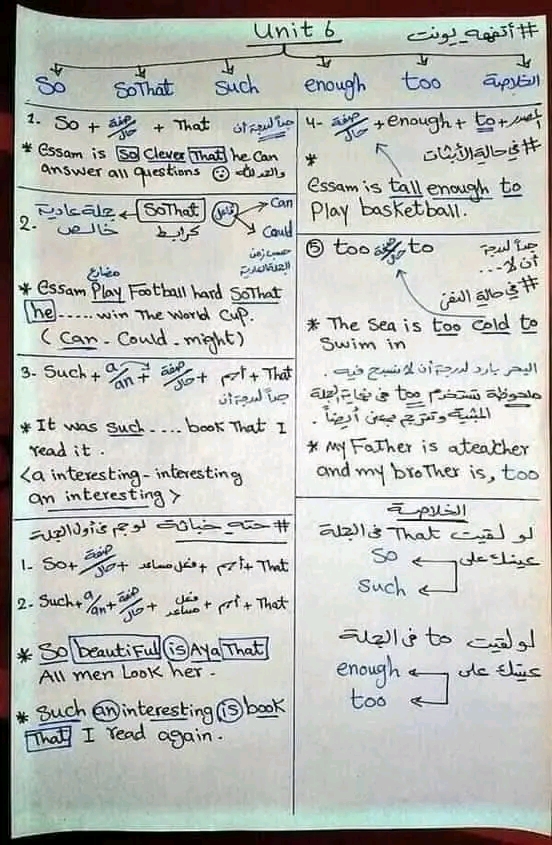 Unit 6
# أتفهه يونت
So
SoThat
Such
enough
too
الخلاصة
1. So + صفة/حال + That جداً لدرجة أن
* Essam is So Clever That he Can
answer all questions والحمد لله
2. جملة عادية خالص ← SoThat كرابط فاعل → Can
Could
حسب زمن الجملة العادية
مضارع
* Essam Play Football hard SoThat
he ..... win The World Cup.
( Can - Could - might)
3- Such + a/an + صفة/حال + اسم + That
جداً لدرجة أن
* It was such .... book That I
read it .
<a interesting - interesting
an interesting >
# حته خباثة لو جم في أول الجملة
1- So + صفة/حال + فعل مساعد + اسم + That
2- Such + a/an + صفة/حال + فعل مساعد + اسم + That
* So beautiful is Aya That
All men Look her .
* Such an interesting is book
That I read again .
4- صفة/حال + enough + to + المصدر
# في حالة الأثبات
*
Essam is tall enough to
Play basketball.
5 too صفة/حال to جداً لدرجة
أن لا ....
# في حالة النفى
* The sea is too Cold to
Swim in
البحر بارد لدرجة أن لا نسبح فيه .
ملحوظة تستخدم too في نهاية الجملة
المثبتة وتترجم بمعنى أيضاً .
* my Father is a teacher
and my broTher is, too
الخلاصة
لو لقيت That في الجملة
عينك على So
Such
لو لقيت to في الجملة
عينك على enough
too